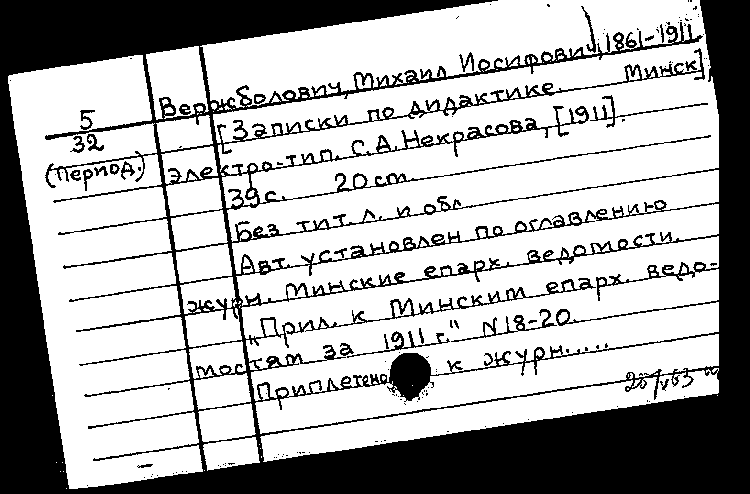 Вержболович, Михаил Иосифович, 1861-1911
5
32
(Период.)
[Записки по дидактике. Минск],
электро-тип. С.А. Некрасова, [1911].
39 с. 20 cm.
Без тит. л. и обл
Авт. установлен по оглавлению
журн. Минские епарх. ведомости.
"Прил. к Минским епарх. ведо-
мостям за 1911 г." N 18-20.
Приплетено к журн.....